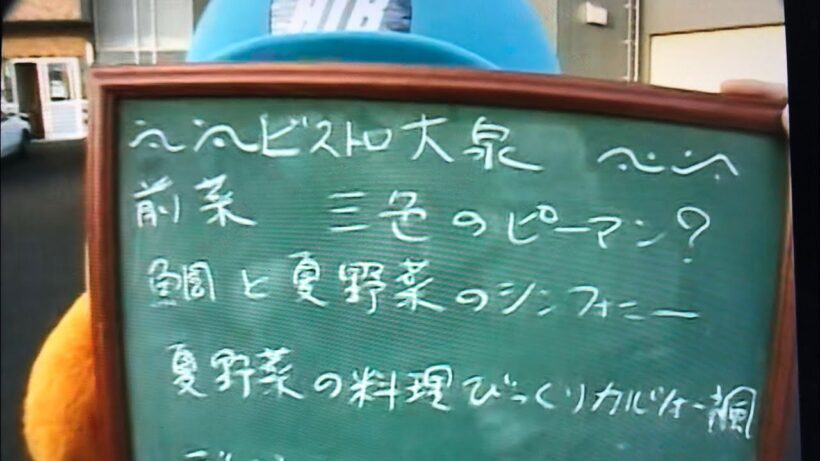 HTB
ビストロ大泉
前菜 三色のピーマン?
鯛と夏野菜のシンフォニー
夏野菜の料理びっくりカルツォーネ風